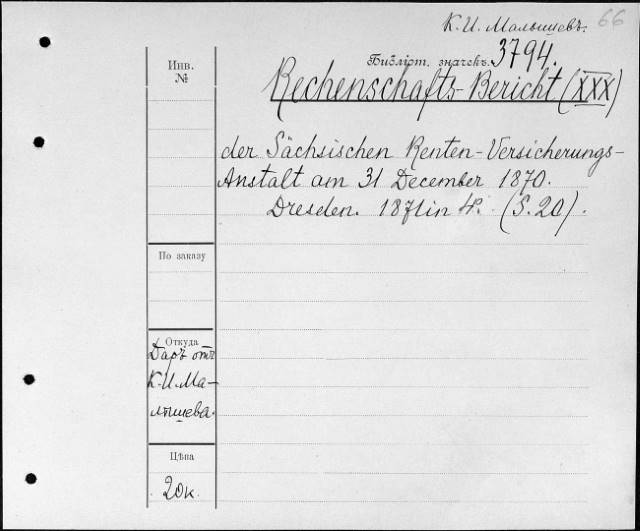 К. И. Малышевъ. 66
Библіот. значекъ. 3794.
Инв.
№
Rechenschafts-Bericht (XXX)
der Sächsischen Renten-Versicherungs-
Anstalt am 31 December 1870.
Dresden. 1871 in 4°. (S. 20).
По заказу
Откуда
Даръ отъ
К. И. Ма-
лышева.
Цѣна
20 к.